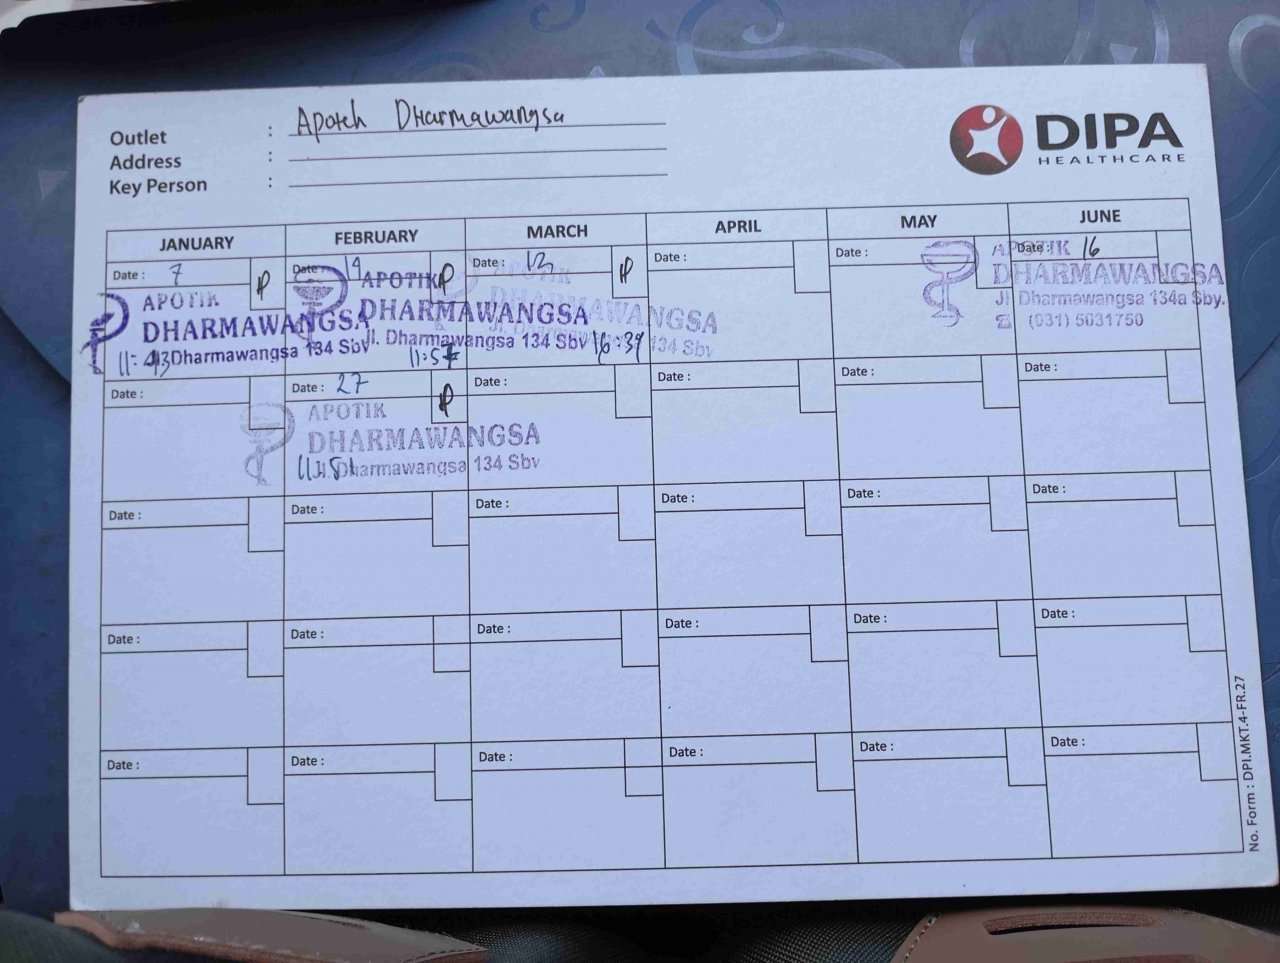 Outlet : Apotek Dharmawangsa
Address :
Key Person :
DIPA
HEALTHCARE
JANUARY FEBRUARY MARCH APRIL MAY JUNE
Date : 7 Date : 19 Date : 13 Date : Date : Date : 16
APOTIK
DHARMAWANGSA
Dharmawangsa 134 Sby
11:43
APOTIK
DHARMAWANGSA
Jl. Dharmawangsa 134 Sby
11:57
APOTIK
DHARMAWANGSA
134 Sby
16:39
APOTIK
DHARMAWANGSA
Jl Dharmawangsa 134a Sby.
(031) 5031750
Date : Date : 27 Date : Date : Date : Date :
APOTIK
DHARMAWANGSA
Dharmawangsa 134 Sby
Date : Date : Date : Date : Date : Date :
Date : Date : Date : Date : Date : Date :
Date : Date : Date : Date : Date : Date :
No. Form : DPI.MKT.4-FR.27